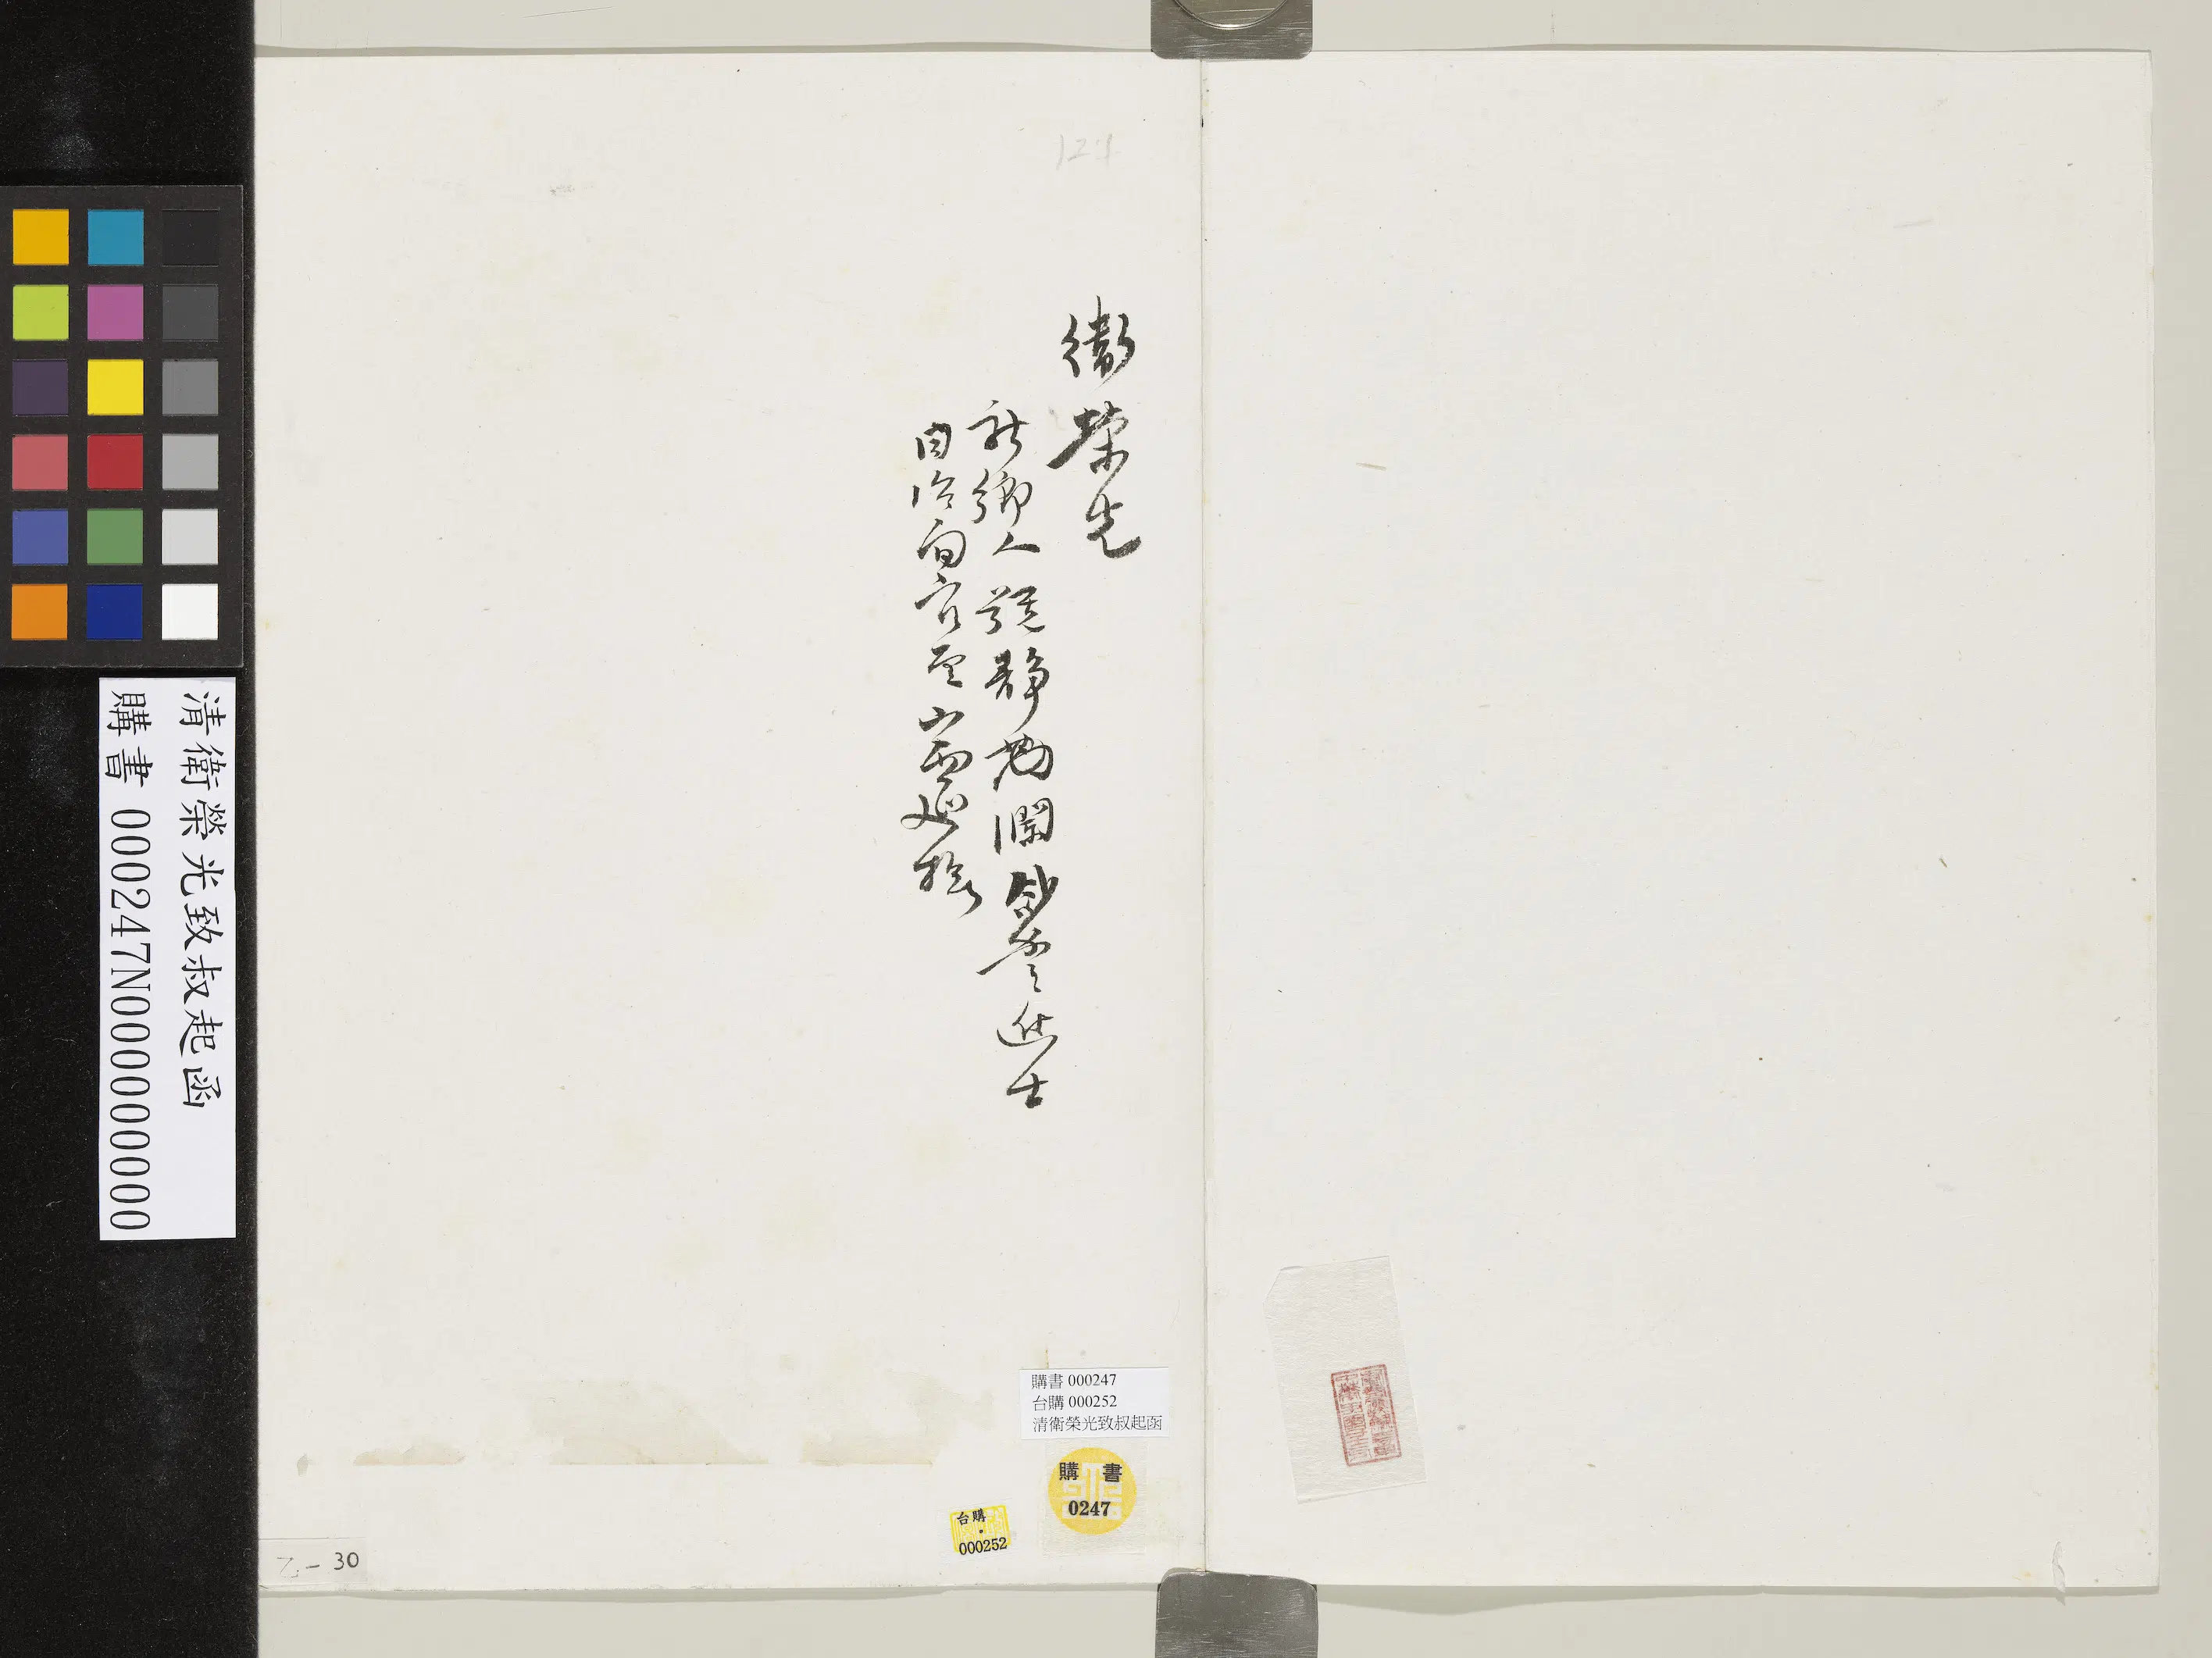 衛榮光
新鄉人號靜瀾咸豐進士
同治間官至山西巡撫
127
購書 000247
台購 000252
清衛榮光致叔起函
購書
0247
台購
000252
乙-30
清衛榮光致叔起函
購書 000247N000000000